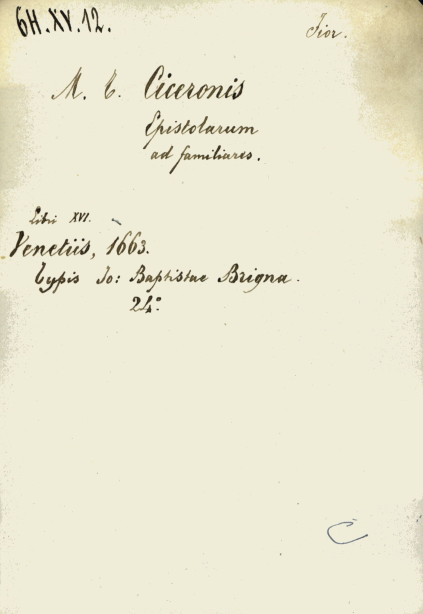 6H.XV.12.
Fior.
M. T. Ciceronis
Epistolarum
ad familiares.
Libri XVI.
Venetiis, 1663.
Typis Jo: Baptistae Brigna.
24°.
C